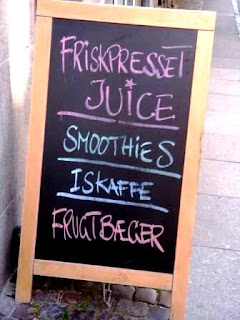 FRISKPRESSET
JUICE
SMOOTHIES
ISKAFFE
FRUGTBÆGER